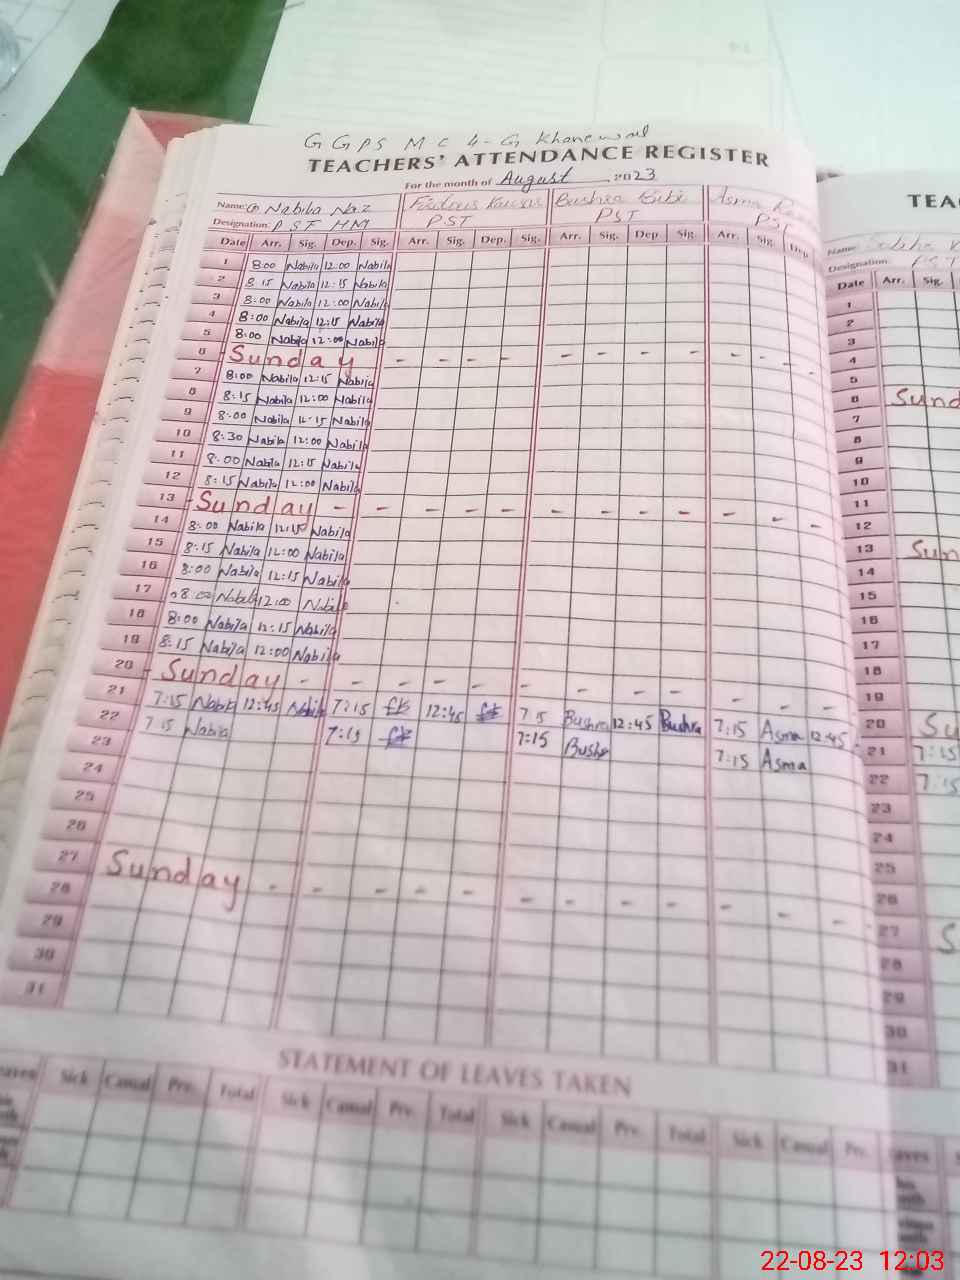 G G P S M C 4-G Khanewal
TEACHERS' ATTENDANCE REGISTER
For the month of August 2023
Name: Nabila Naz Firdous Kausar Bushra Bibi Asma
Designation: PST HM PST PST PST
Date Arr. Sig. Dep. Sig. Arr. Sig. Dep. Sig. Arr. Sig. Dep. Sig. Arr. Sig. Dep.
1 8:00 Nabila 12:00 Nabila
2 8:15 Nabila 12:15 Nabila
3 8:00 Nabila 12:00 Nabila
4 8:00 Nabila 12:15 Nabila
5 8:00 Nabila 12:00 Nabila
6 Sunday - - - - - - - - - - -
7 8:00 Nabila 12:15 Nabila
8 8:15 Nabila 12:00 Nabila
9 8:00 Nabila 12:15 Nabila
10 8:30 Nabila 12:00 Nabila
11 8:00 Nabila 12:15 Nabila
12 8:15 Nabila 12:00 Nabila
13 Sunday - - - - - - - - - - - -
14 8:00 Nabila 12:15 Nabila
15 8:15 Nabila 12:00 Nabila
16 8:00 Nabila 12:15 Nabila
17 8:00 Nabila 12:00 Nabila
18 8:00 Nabila 12:15 Nabila
19 8:15 Nabila 12:00 Nabila
20 Sunday - - - - - - - - - - - -
21 7:15 Nabila 12:45 Nabila 7:15 fk 12:45 fk 7 15 Bushra 12:45 Bushra 7:15 Asma 12:45
22 7 15 Nabila 7:15 fk 7:15 Bushra 7:15 Asma
23
24
25
26
27 Sunday - - - - - - - - - - - -
28
29
30
31
STATEMENT OF LEAVES TAKEN
Sick Casual Prv. Total Sick Casual Prv. Total Sick Casual Prv. Total Sick Casual Prv.
TEA
Name:
Designation: PST
Date Arr. Sig.
1
2
3
4
5
6 Sund
7
8
9
10
11
12
13 Sun
14
15
16
17
18
19
20 Su
21 7:15
22 7:15
23
24
25
26
27 S
28
29
30
31
22-08-23 12:03